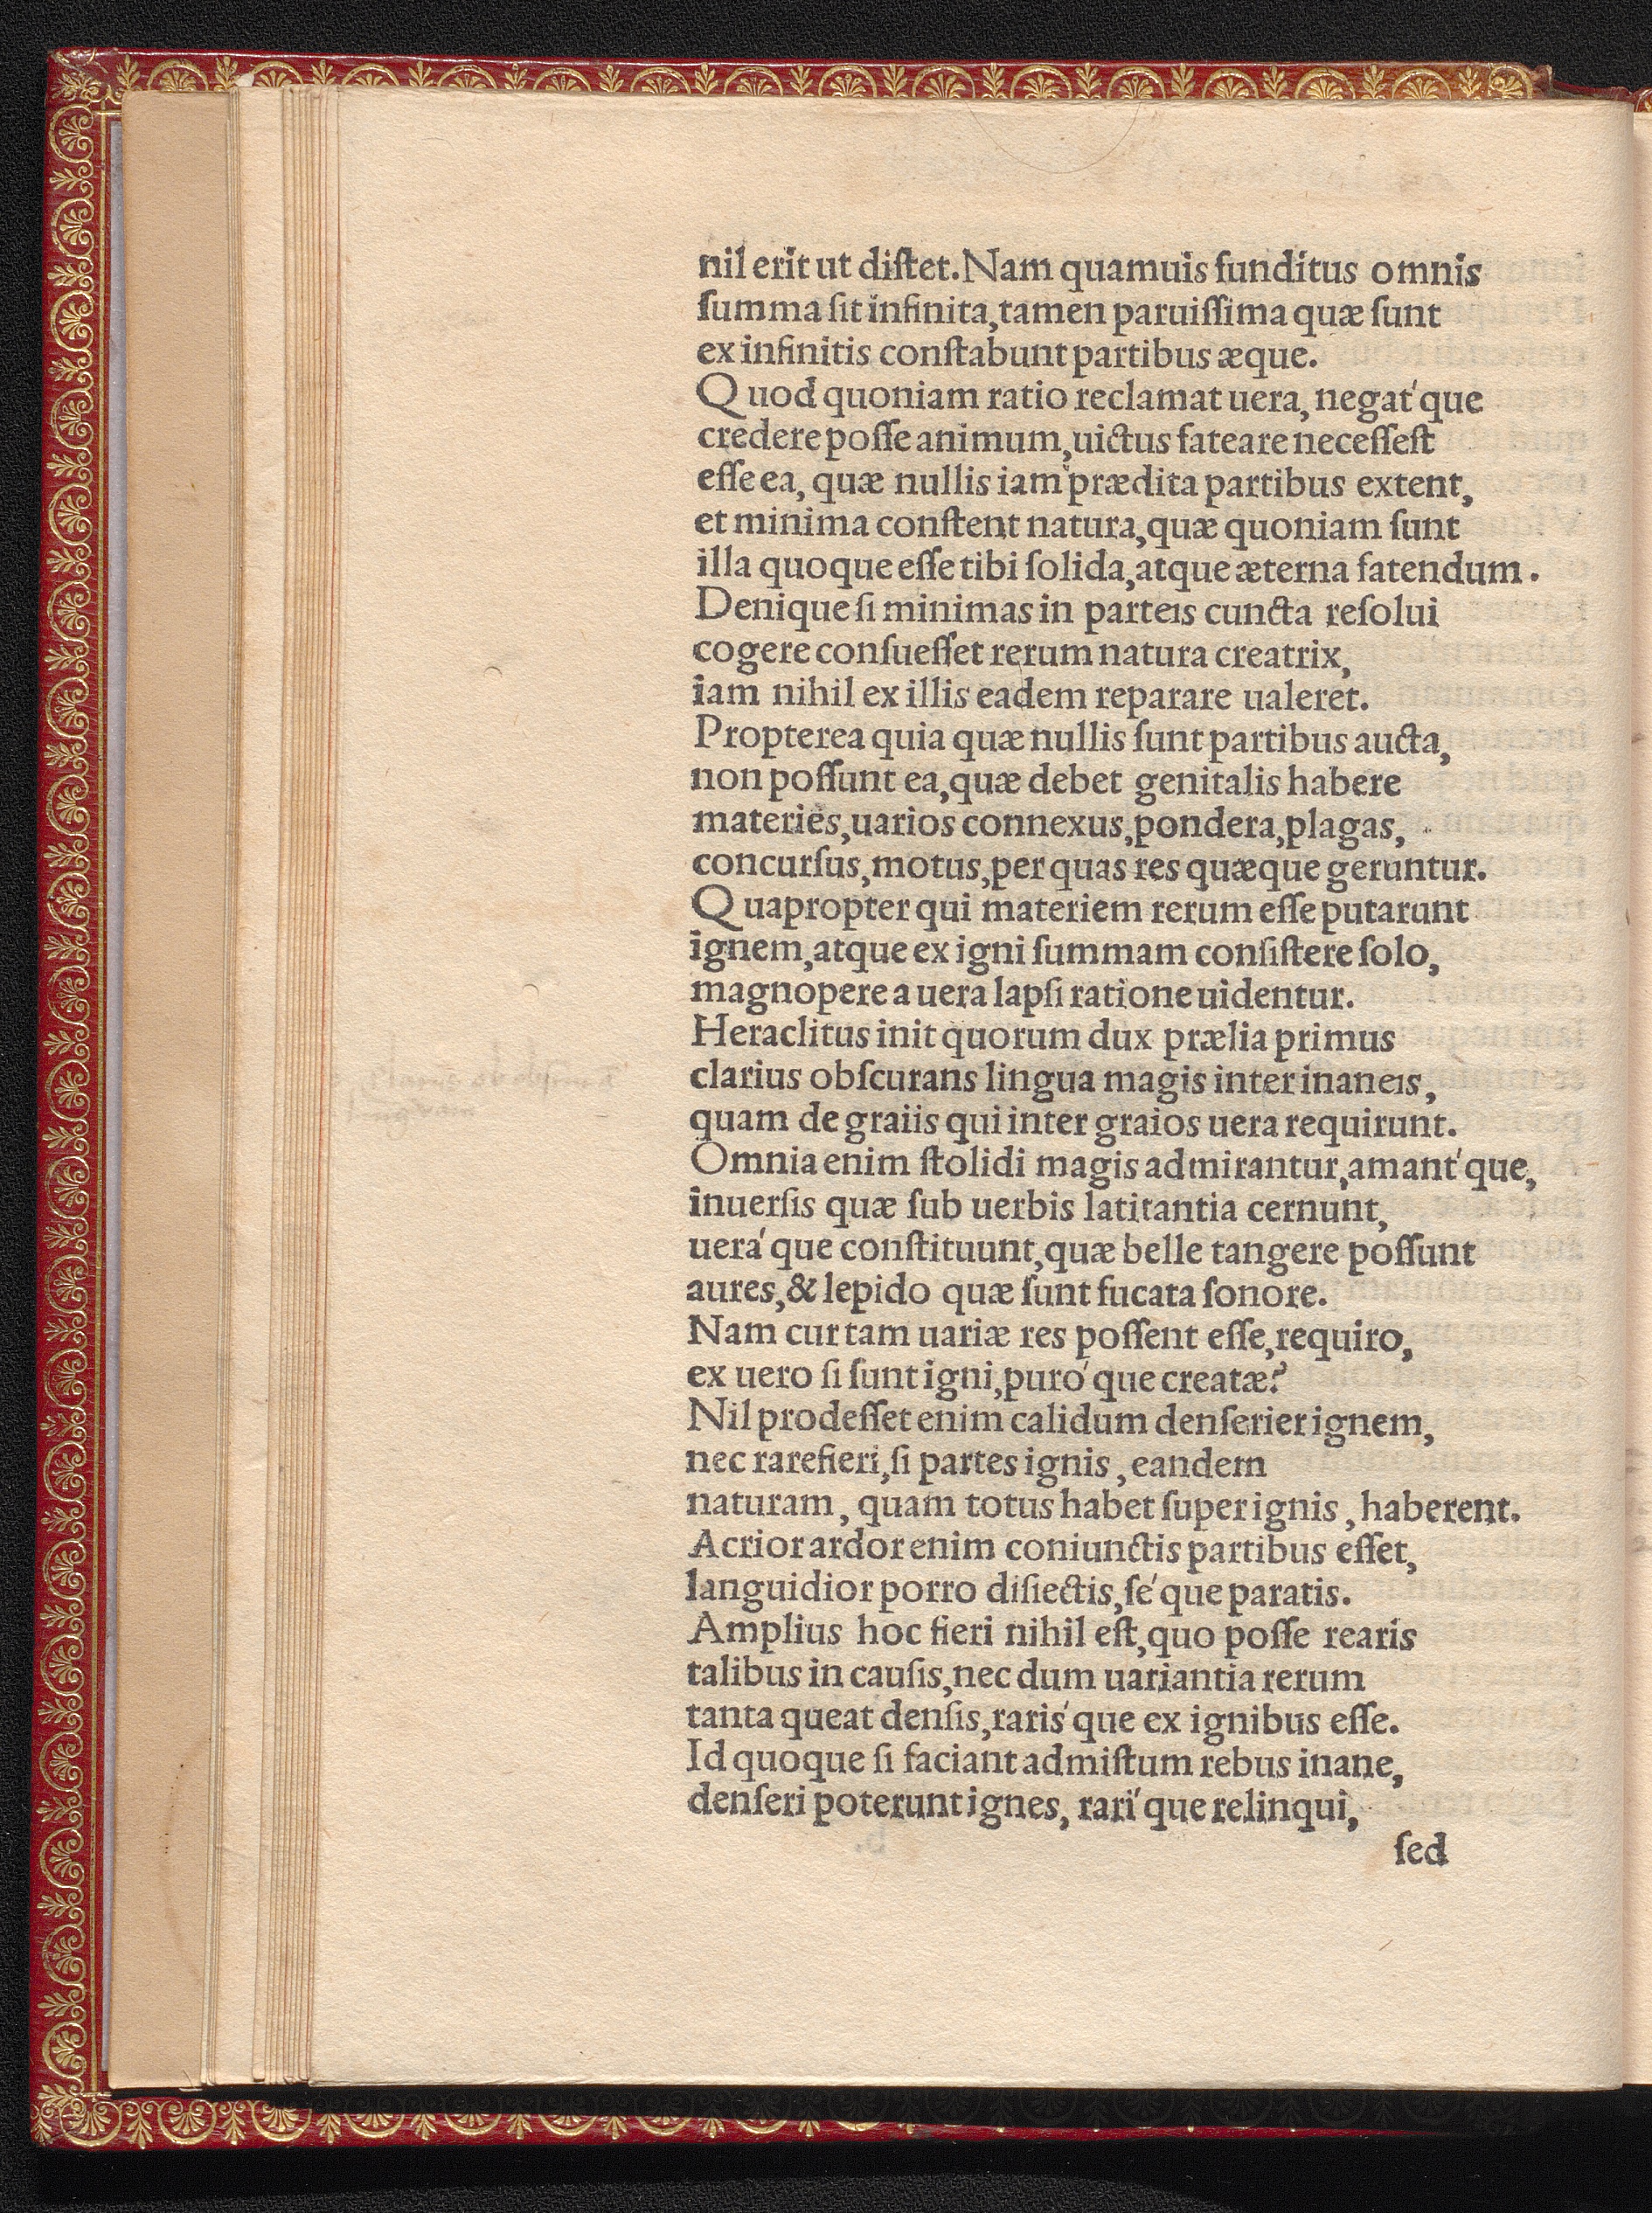 nil erit ut diſtet.Nam quamuis funditus omnis
ſumma ſit infinita,tamen paruiſſima quæ ſunt
ex infinitis conſtabunt partibus æque.
Quod quoniam ratio reclamat uera, negat´que
credere poſſe animum,uictus fateare neceſſeſt
eſſe ea, quæ nullis iam prædita partibus extent,
et minima conſtent natura,quæ quoniam ſunt
illa quoque eſſe tibi ſolida,atque æterna fatendum.
Denique ſi minimas in parteis cuncta reſolui
cogere conſueſſet rerum natura creatrix,
iam nihil ex illis eadem reparare ualeret.
Propterea quia quæ nullis ſunt partibus aucta,
non poſſunt ea,quæ debet genitalis habere
materies,uarios connexus,pondera,plagas,
concurſus,motus,per quas res quæque geruntur.
Quapropter qui materiem rerum eſſe putarunt
ignem,atque ex igni ſummam conſiſtere ſolo,
magnopere a uera lapſi ratione uidentur.
Heraclitus init quorum dux prælia primus
clarius obſcurans lingua magis inter inaneis,
quam de graiis qui inter graios uera requirunt.
Omnia enim ſtolidi magis admirantur,amant´que,
inuerſis quæ ſub uerbis latitantia cernunt,
uera´que conſtituunt,quæ belle tangere poſſunt
aures,& lepido quæ ſunt fucata ſonore.
Nam cur tam uariæ res poſſent eſſe,requiro,
ex uero ſi ſunt igni,puro´que creatæ?
Nil prodeſſet enim calidum denſerier ignem,
nec rarefieri,ſi partes ignis, eandem
naturam, quam totus habet ſuper ignis, haberent.
Acrior ardor enim coniunctis partibus eſſet,
languidior porro diſiectis,ſe´que paratis.
Amplius hoc fieri nihil eſt,quo poſſe rearis
talibus in cauſis,nec dum uariantia rerum
tanta queat denſis,raris´que ex ignibus eſſe.
Id quoque ſi faciant admiſtum rebus inane,
denſeri poterunt ignes, rari´que relinqui,
ſed